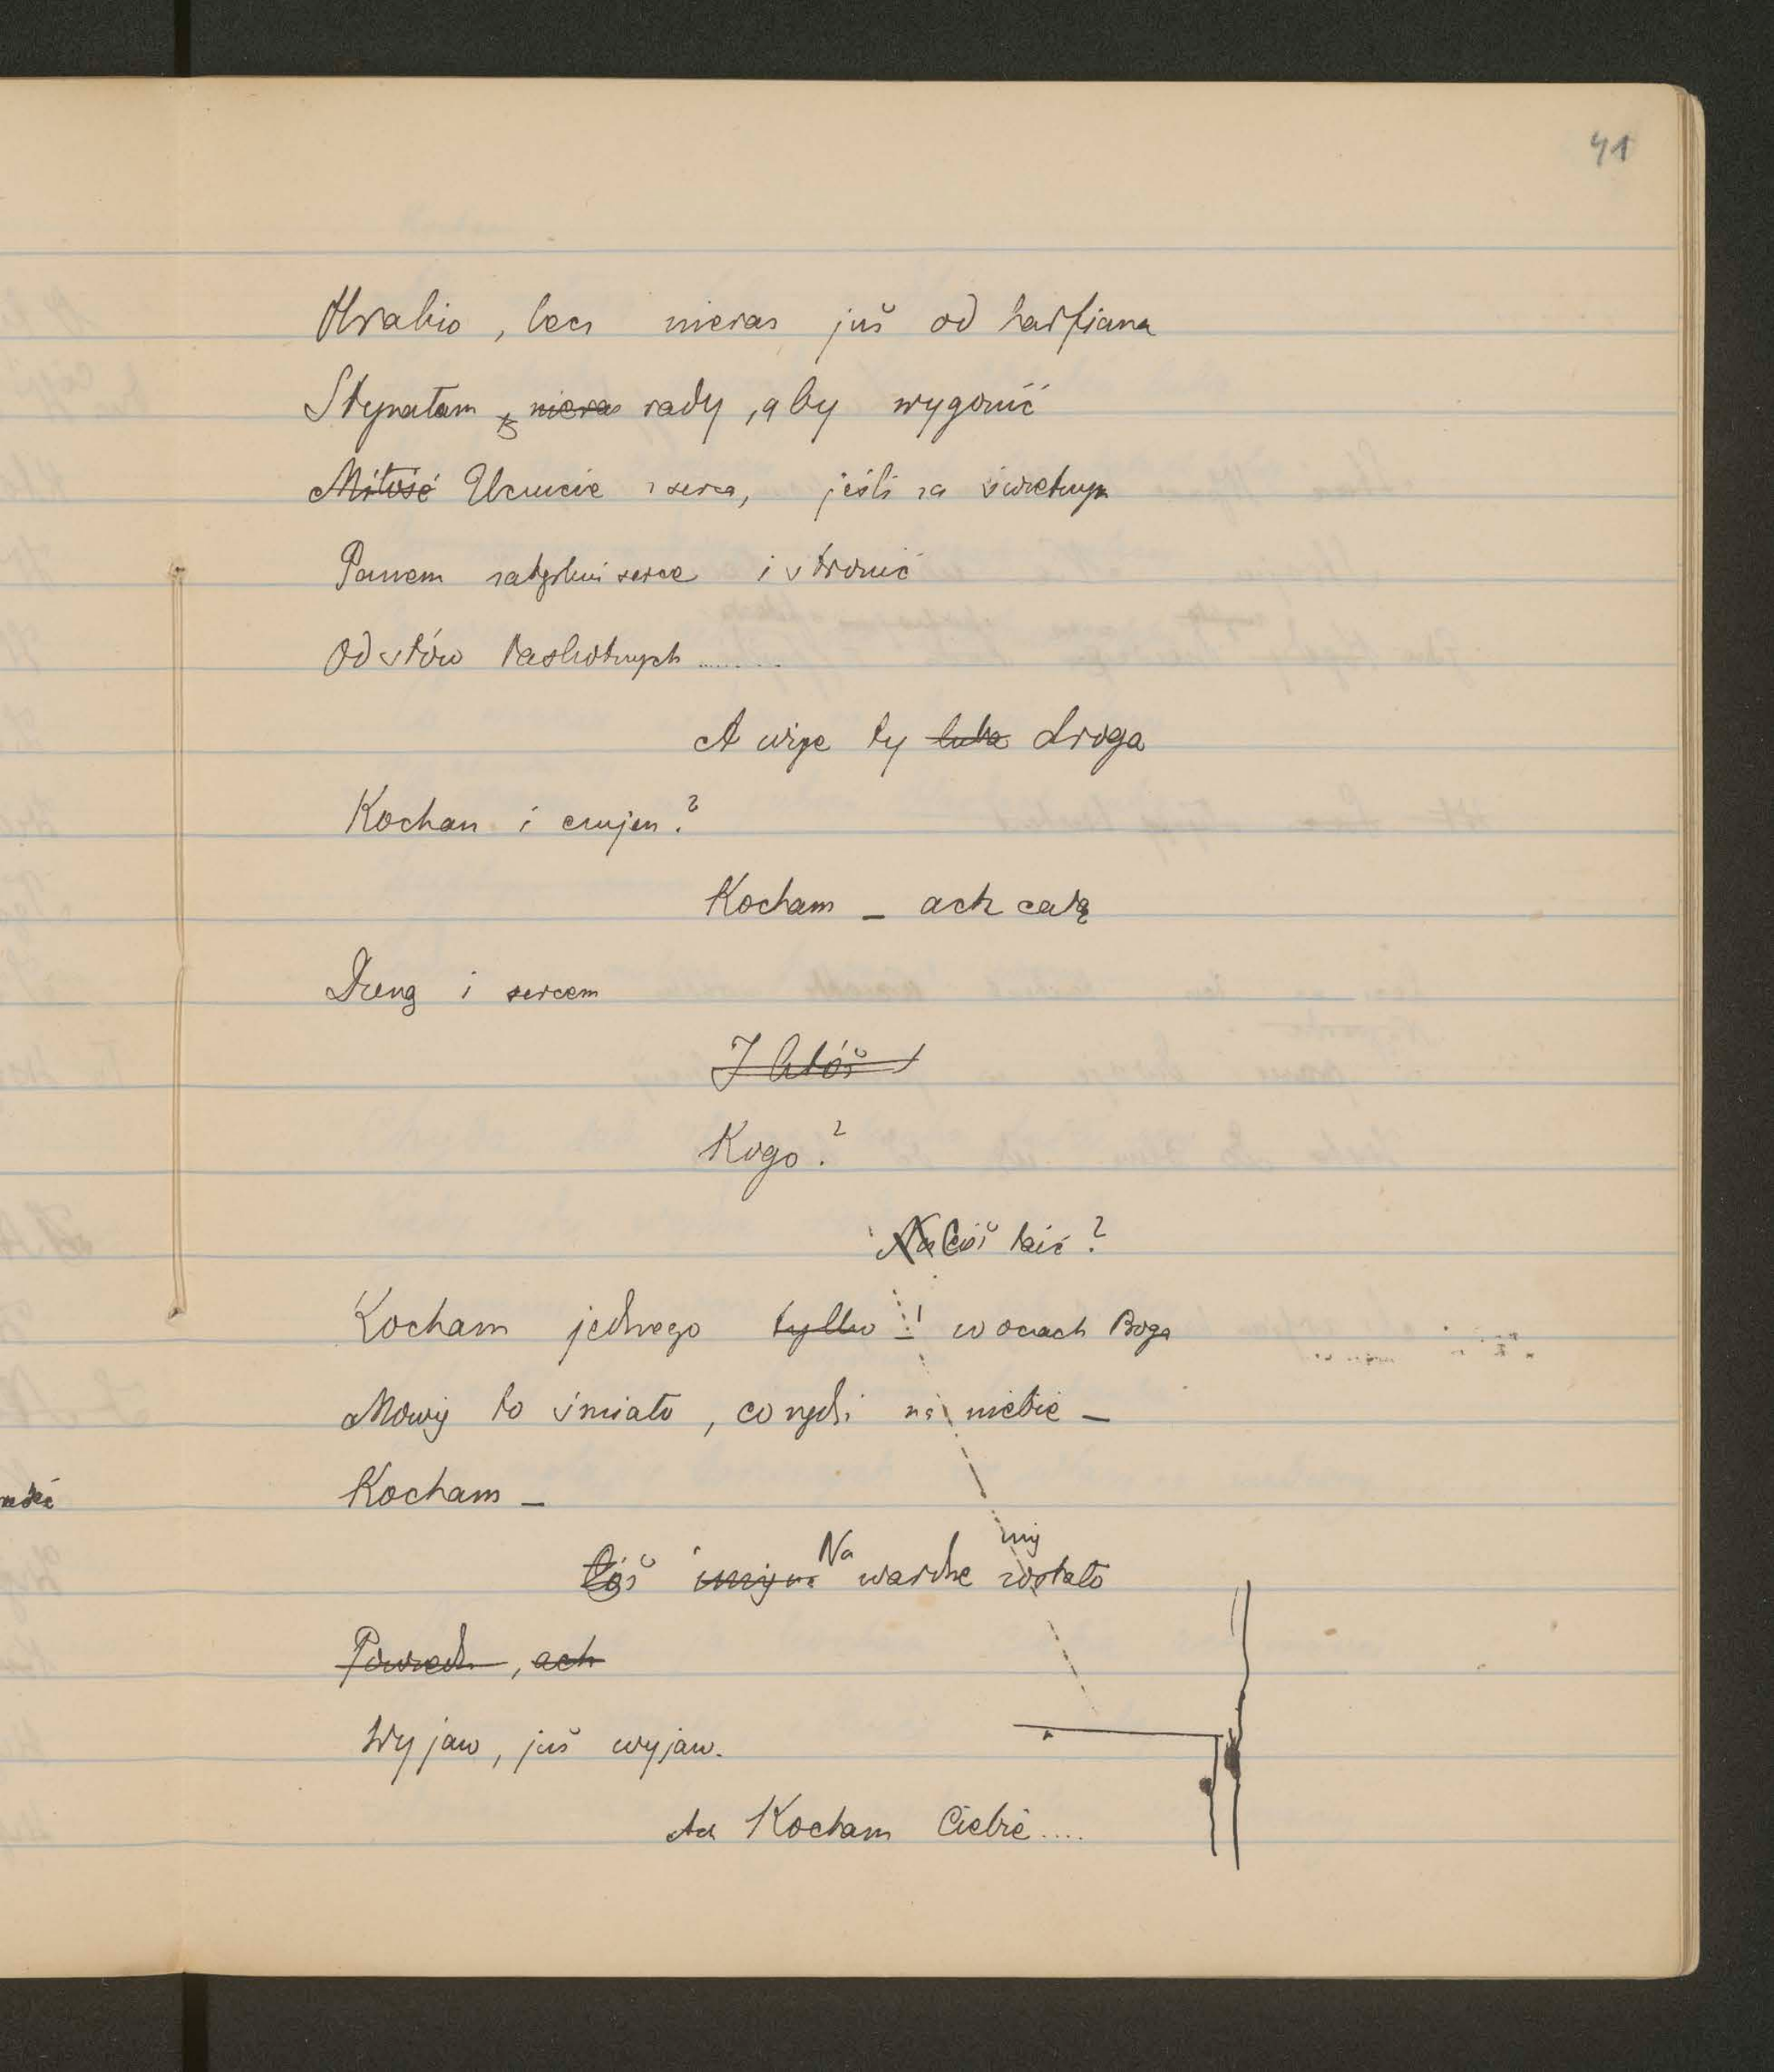 41
Hrabio, lecz nieraz już od harfiana
Słyszałam z nieraz rady, aby wygonić
Miłość Uczucie z serca, jeśli za świetnym
Panem zatęskni serce i stronić
Od słów zaslotnych ........
A więc ty luba droga
Kochasz i czujesz?
Kocham – ach całą
Duszą i sercem
I któż
Kogo?
Na Cóż taić?
Kocham jednego tylko ! w oczach Boga
Mówię to śmiało, co rządzi na niebie –
Kocham –
Cóż imię na Na wardze mię zostało
Powiedz, ach
Wyjaw, już wyjaw.
Ach Kocham Ciebie....